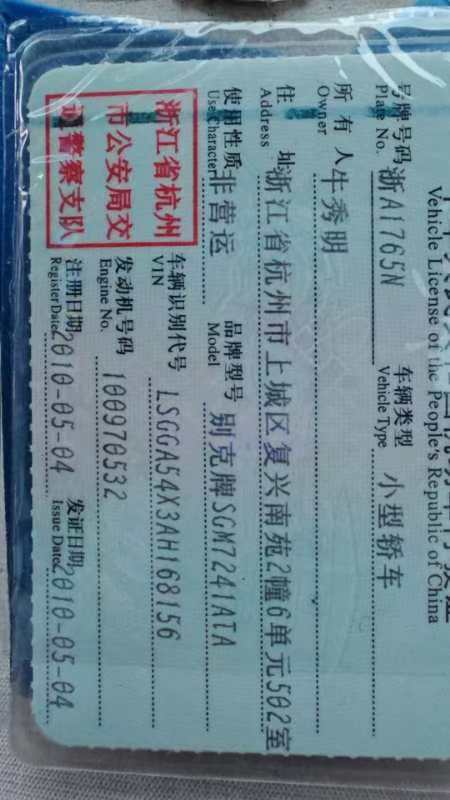 Vehicle License of the People's Republic of China
号牌号码 浙A1765N 车辆类型 小型轿车
Plate No. Vehicle Type
所有人 牛秀明
Owner
住址 浙江省杭州市上城区复兴南苑2幢6单元502室
Address
使用性质 非营运 品牌型号 别克牌SGM7241ATA
Use Character Model
浙江省杭州
市公安局交
警察支队
车辆识别代号 LSGGA54X3AH168156
VIN
发动机号码 100970532
Engine No.
注册日期 2010-05-04 发证日期 2010-05-04
Register Date Issue Date